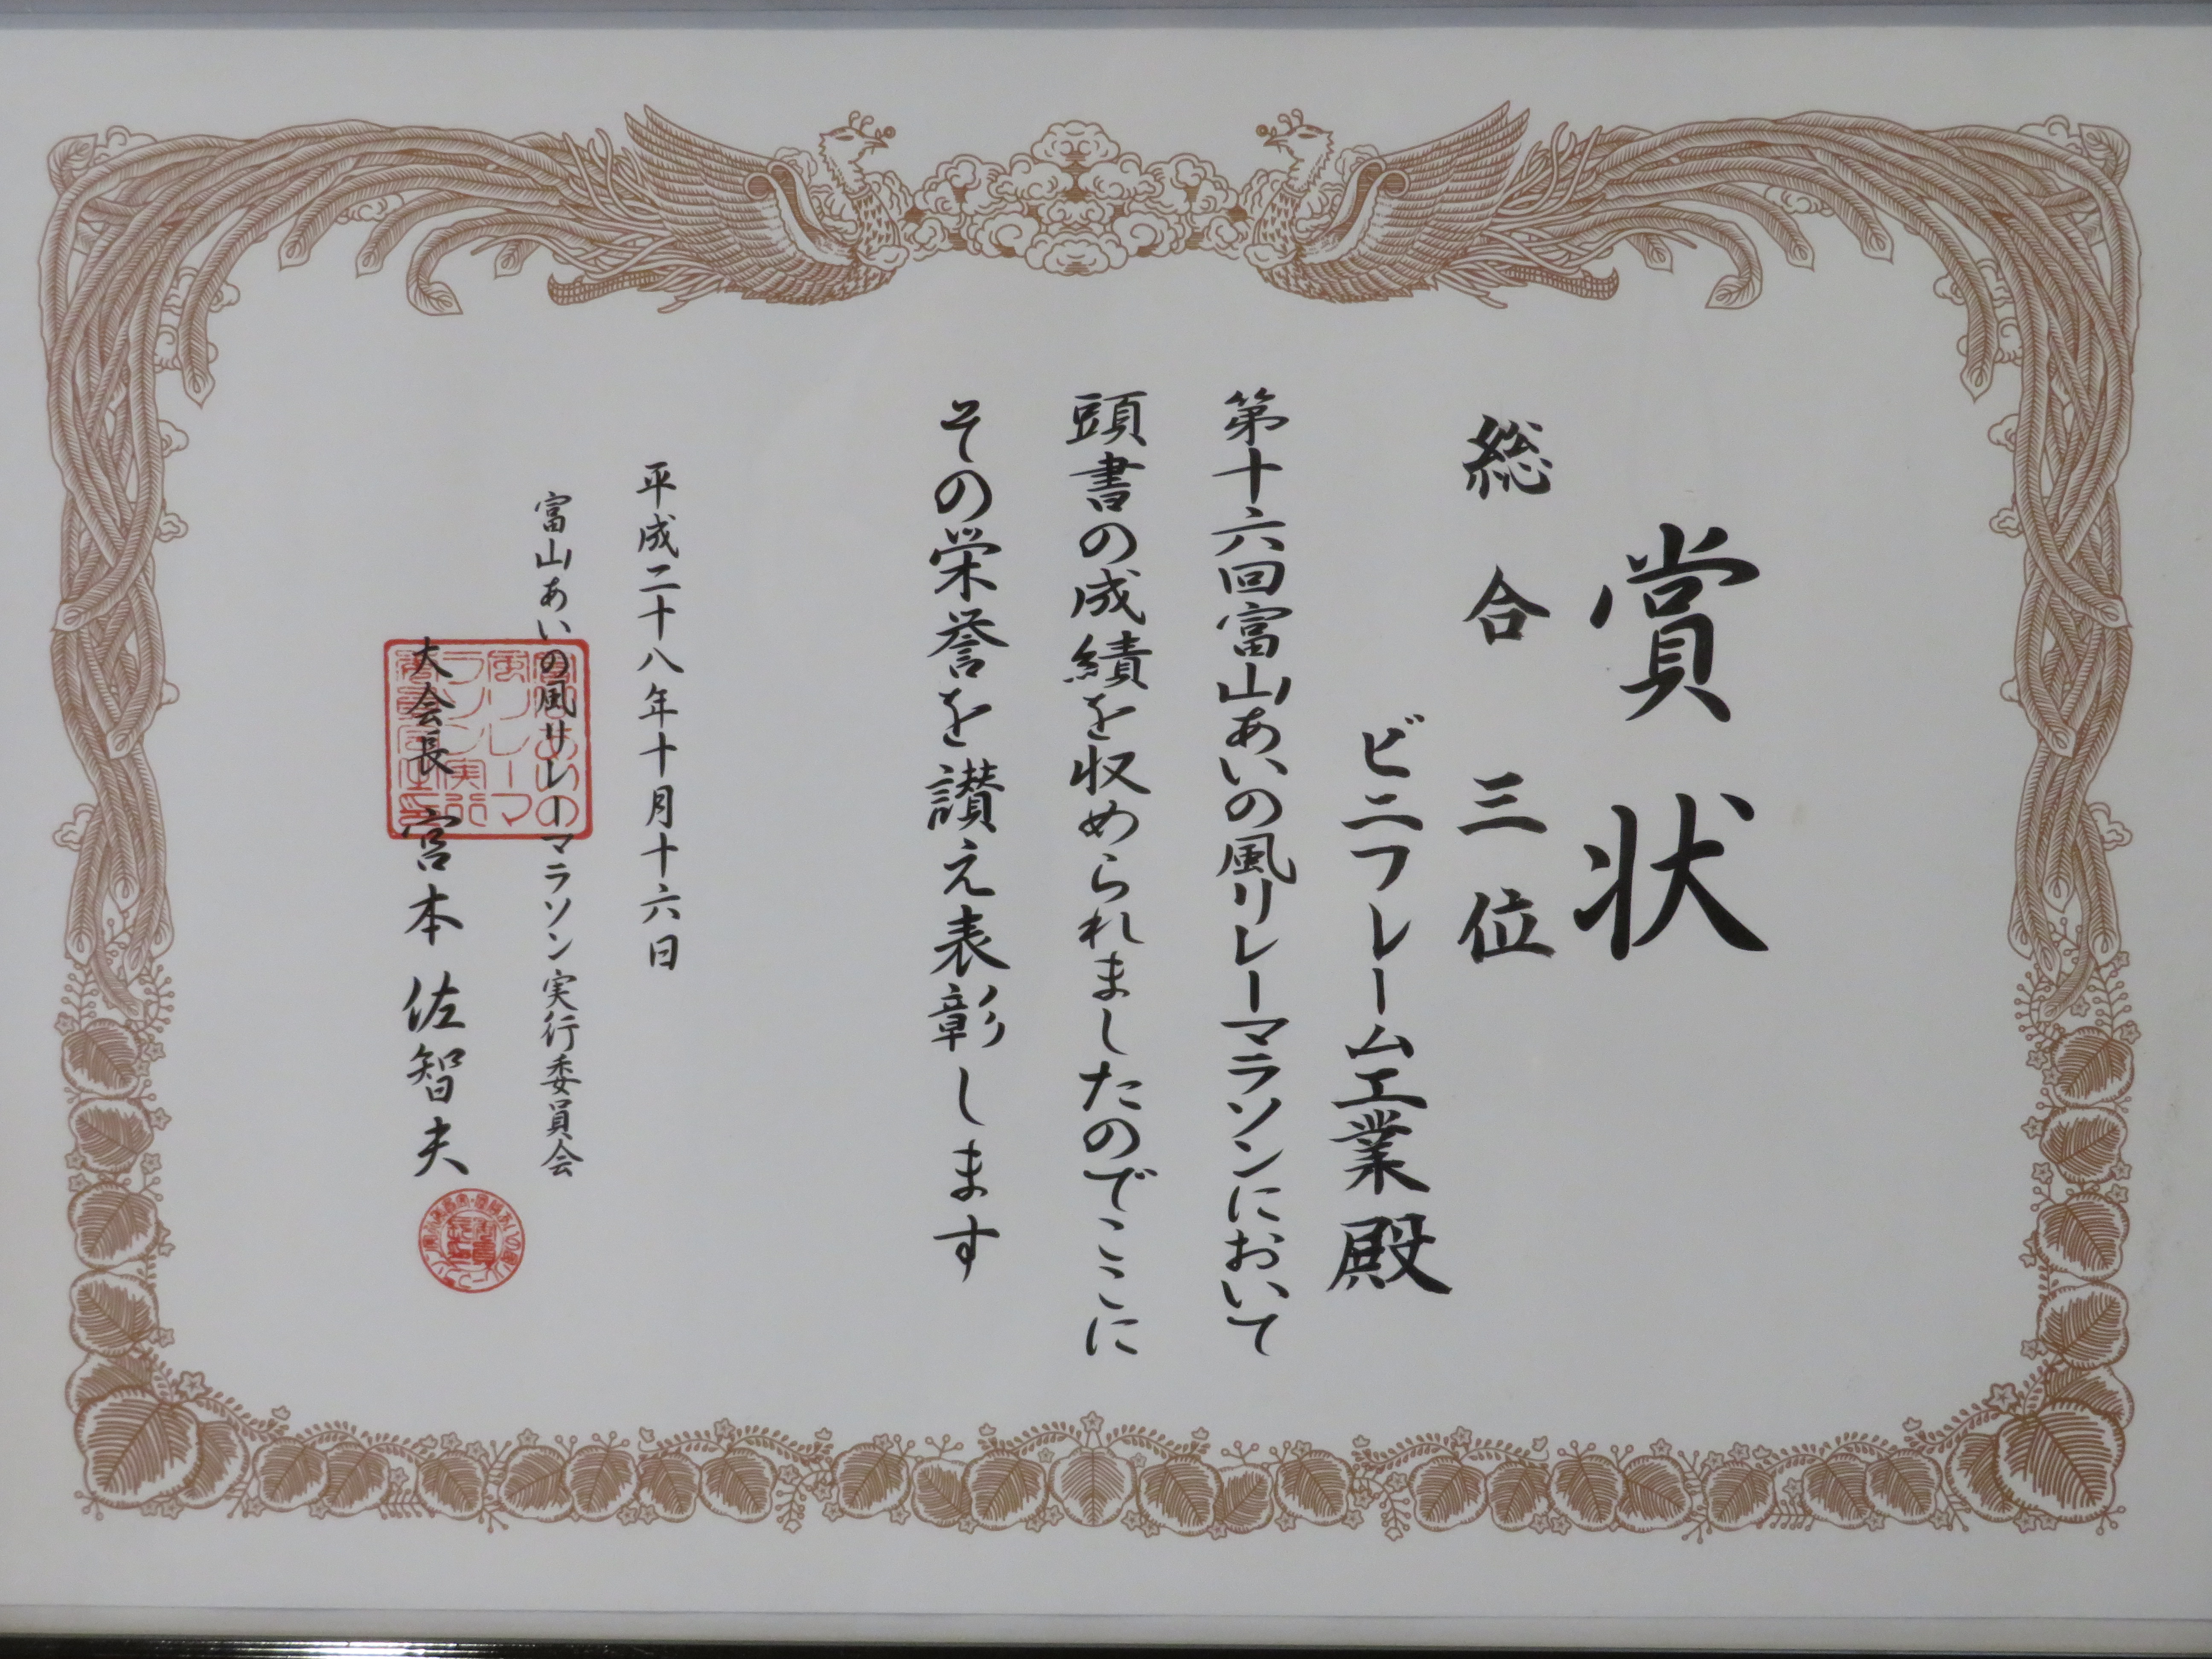 賞状
総合三位
ビニフレーム工業殿
第十六回富山あいの風リレーマラソンにおいて
頭書の成績を収められましたのでここに
その栄誉を讃え表彰します
平成二十八年十月十六日
富山あいの風リレーマラソン実行委員会
大会長 宮本佐智夫